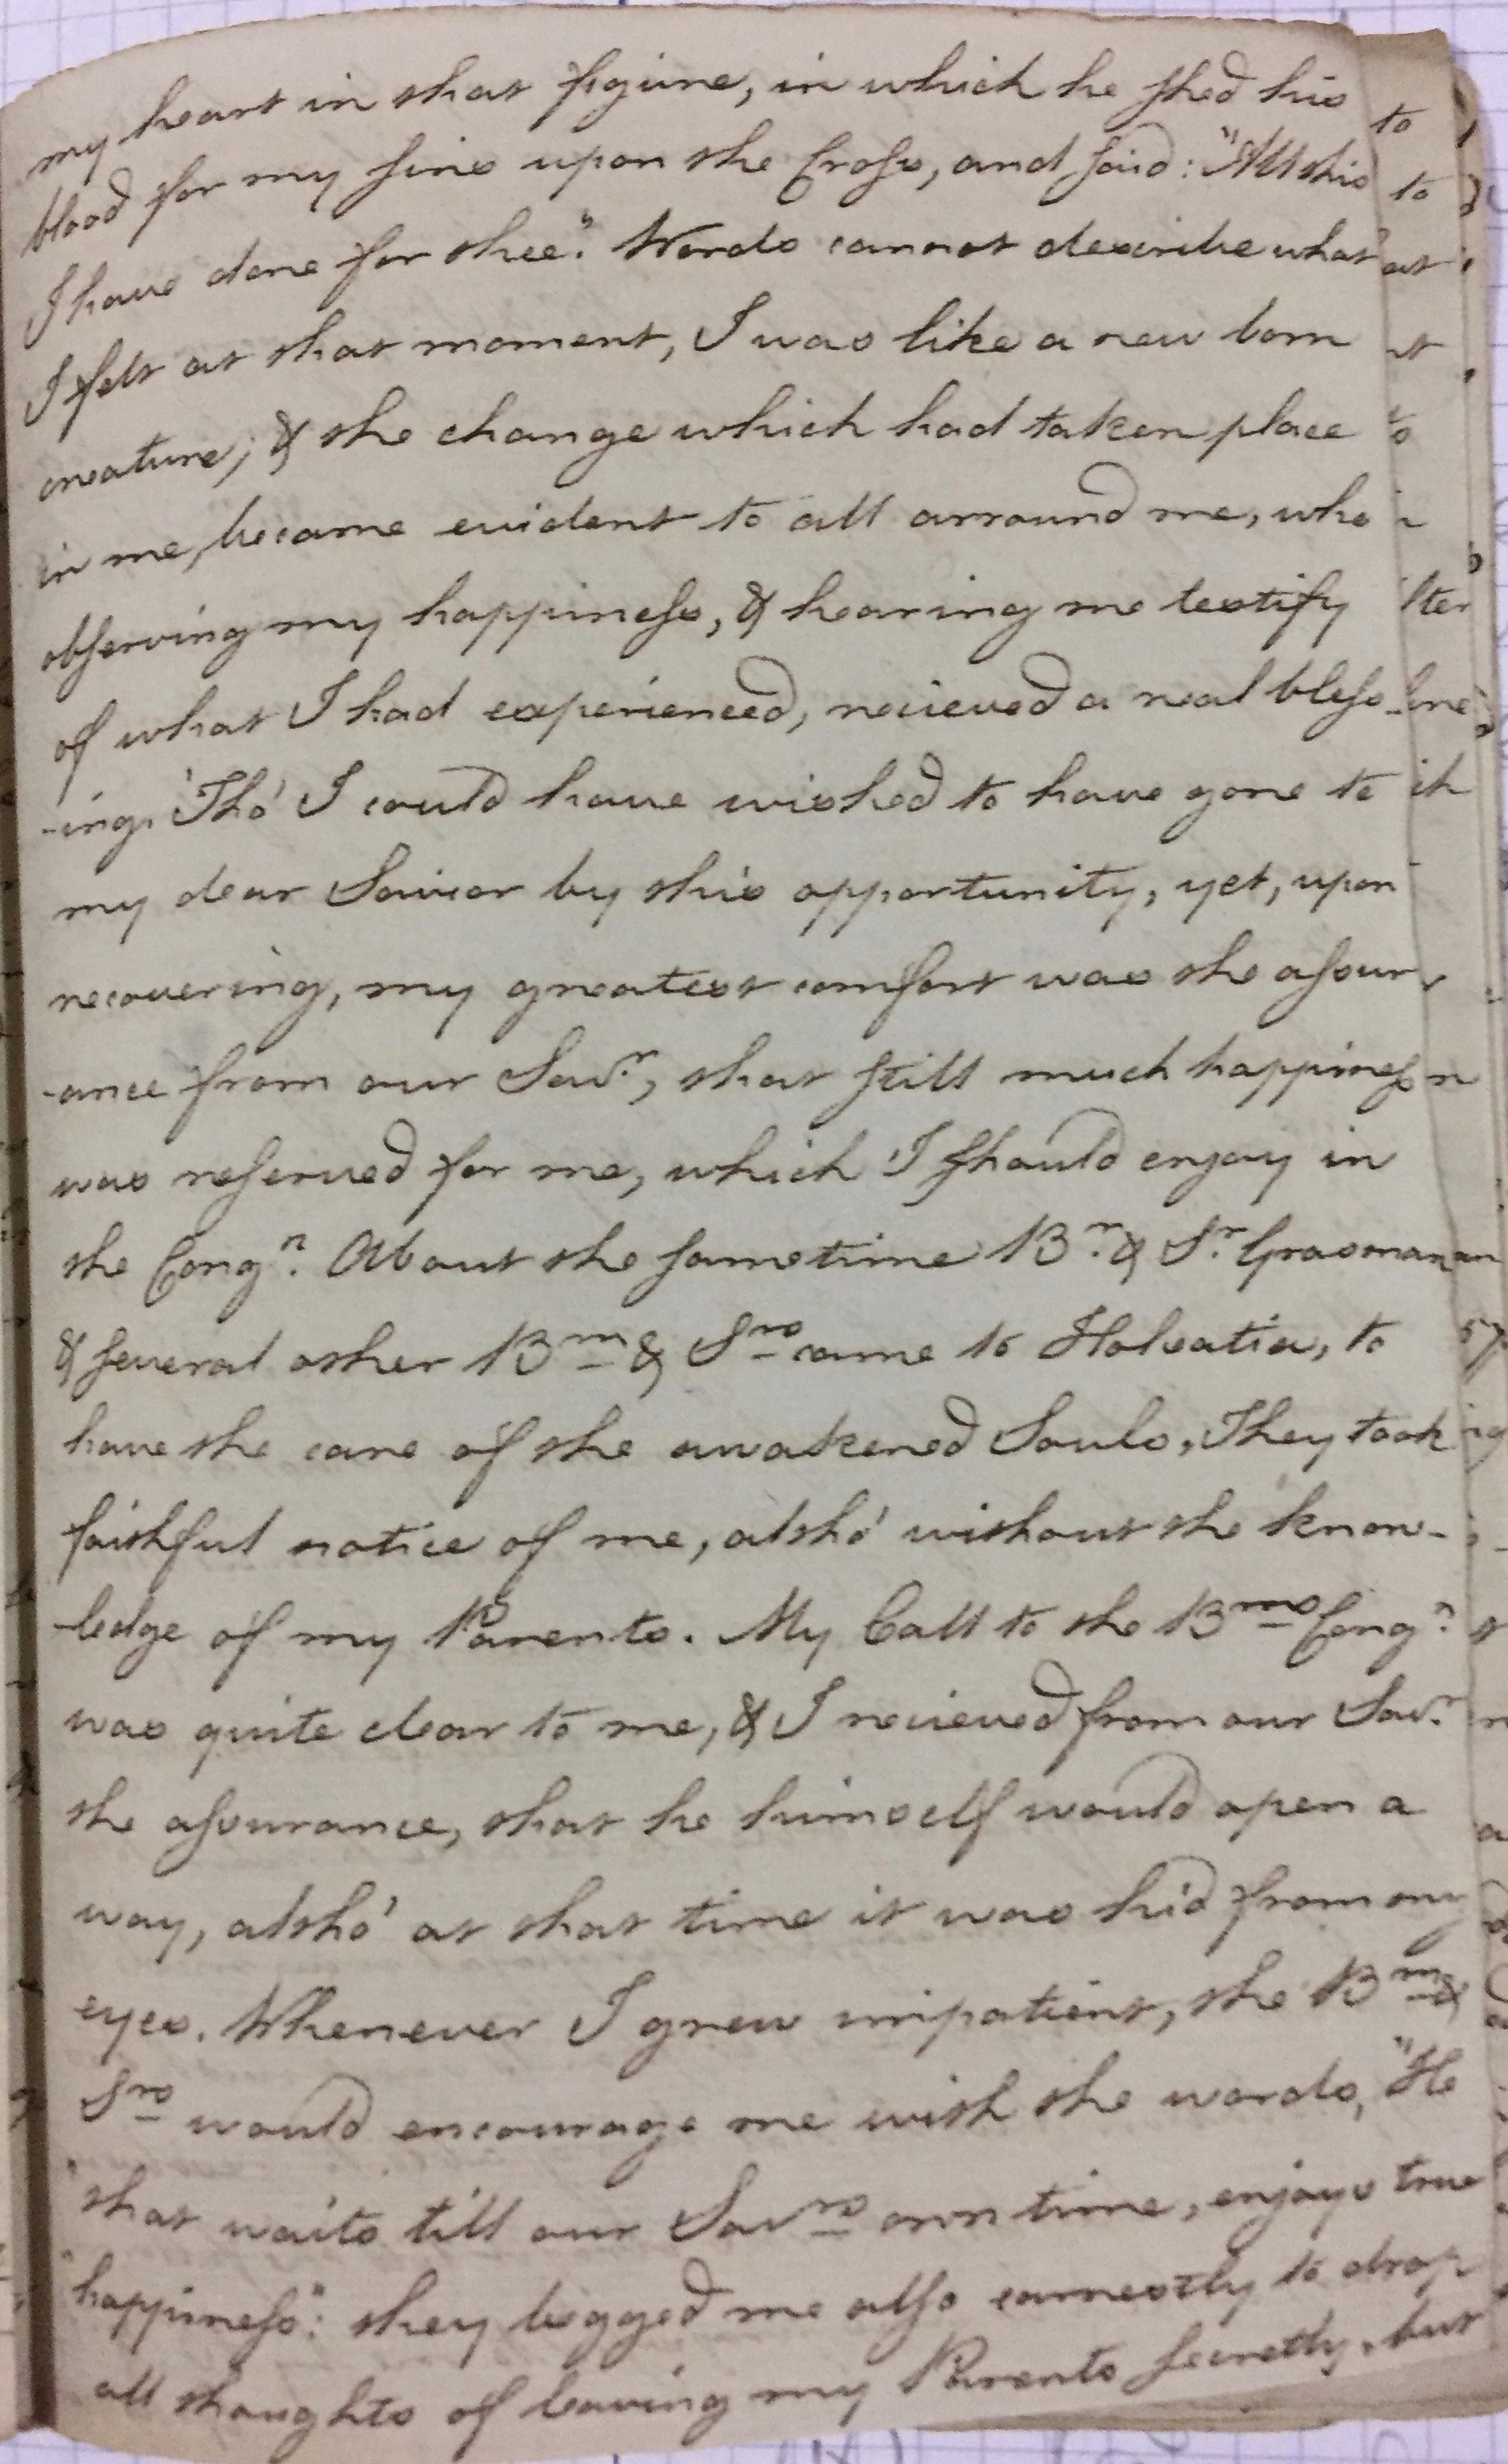 my heart in that figure, in which he shed his
blood for my sins upon the Cross, and said: "All this
I have done for thee." Words cannot describe what
I felt at that moment, I was like a new born
creature; & the change which had taken place
in me, became evident to all arround me, who
observing my happiness, & hearing me testify
of what I had experienced, recieved a real bless-
-ing. Tho' I could have wished to have gone to
my dear Savior by this opportunity, yet, upon
recovering, my greatest comfort was the assur
-ance from our Savr, that still much happiness
was reserved for me, which I should enjoy in
the Congn. About the same time Br. & Sr. Grasman
& several other Brn & Srs came to Holsatia, to
have the care of the awakened Souls, They took
faithful notice of me, altho' without the know-
-ledge of my Parents. My Call to the Brns Congn.
was quite clear to me, & I recieved from our Savr.
the assurance, that he himself would open a
way, altho' at that time it was hid from my
eyes. Whenever I grew impatient, the Brn &
Srs would encourage me with the words, "He
"that waits till our Savrs own time, enjoys true
"happiness": they begged me also earnestly to drop
all thoughts of leaving my Parents secretly, but